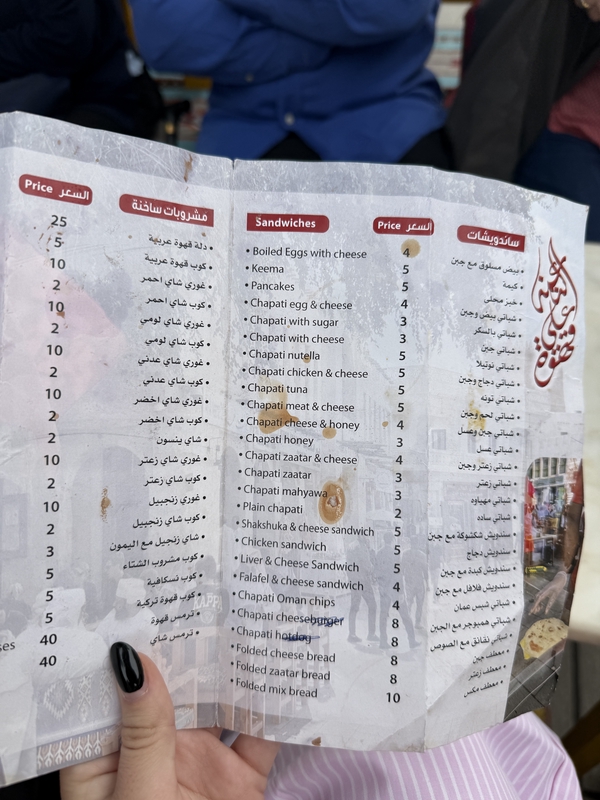 Price السعر مشروبات ساخنة
25 • دلة قهوة عربية
5 • كوب قهوة عربية
10 • غوري شاي احمر
2 • كوب شاي احمر
10 • غوري شاي لومي
2 • كوب شاي لومي
10 • غوري شاي عدني
2 • كوب شاي عدني
10 • غوري شاي اخضر
2 • كوب شاي اخضر
2 • شاي ينسون
10 • غوري شاي زعتر
2 • كوب شاي زعتر
10 • غوري زنجبيل
2 • كوب شاي زنجبيل
3 • شاي زنجبيل مع اليمون
5 • كوب مشروب الشتاء
5 • كوب نسكافية
5 • كوب قهوة تركية
40 • ترمس قهوة
40 • ترمس شاي
Sandwiches Price السعر ساندويشات
• Boiled Eggs with cheese 4 • بيض مسلوق مع جبن
• Keema 5 • كيمة
• Pancakes 5 • خبز محلى
• Chapati egg & cheese 4 • شباتي بيض وجبن
• Chapati with sugar 3 • شباتي بالسكر
• Chapati with cheese 3 • شباتي جبن
• Chapati nutella 5 • شباتي نوتيلا
• Chapati chicken & cheese 5 • شباتي دجاج وجبن
• Chapati tuna 5 • شباتي تونه
• Chapati meat & cheese 5 • شباتي لحم وجبن
• Chapati cheese & honey 4 • شباتي جبن وعسل
• Chapati honey 3 • شباتي عسل
• Chapati zaatar & cheese 4 • شباتي زعتر وجبن
• Chapati zaatar 3 • شباتي زعتر
• Chapati mahyawa 3 • شباتي مهياوه
• Plain chapati 2 • شباتي ساده
• Shakshuka & cheese sandwich 5 • سندويش شكشوكة مع جبن
• Chicken sandwich 5 • سندويش دجاج
• Liver & Cheese Sandwich 5 • سندويش كبدة مع جبن
• Falafel & cheese sandwich 4 • سندويش فلافل مع جبن
• Chapati Oman chips 4 • شباتي شبس عمان
• Chapati cheeseburger 8 • شباتي همبوجر مع الجبن
• Chapati hotdog 8 • شباتي نقانق مع الصوص
• Folded cheese bread 8 • مطعف جبن
• Folded zaatar bread 8 • مطعف زعتر
• Folded mix bread 10 • مطعف مكس